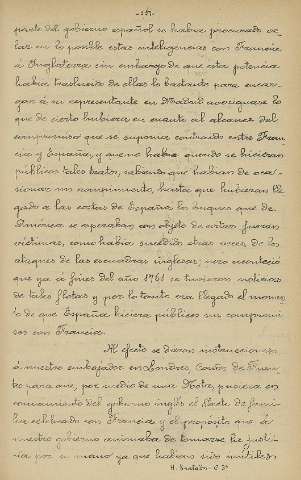 -157-
parte del gobierno español se había procurado ve-
lar en lo posible estas inteligencias con Francia
á Inglaterra sin embargo de que esta potencia
había traslucido de ellas lo bastante para encar-
gar á su representante en Madrid averiguase lo
que de cierto hubiera en cuanto al alcance del
compromiso que se suponía contraído entre Fran-
cia y España, y que no había querido se hicieran
públicos tales tratos, sabiendo que habían de oca-
sionar un rompimiento, hasta que hubieran lle-
gado á las costas de España los buques que de
América se esperaban con objeto de evitar fueran
víctimas, como había sucedido otras veces de los
ataques de las escuadras inglesas; pero aconteció
que ya á fines del año 1761 se tuvieron noticias
de tales flotas y por lo tanto era llegado el momen-
to de que España hiciera públicos sus compromi-
sos con Francia.
Al efecto se dieron instrucciones
á nuestro embajador en Londres, Conde de Fuen-
tes para que, por medio de una Nota, pusiera en
conocimiento del gobierno inglés el Pacto de fami-
lia celebrado con Francia y el propósito que á
nuestro gobierno animaba de tomarse la justi-
cia por su mano ya que habían sido inútiles